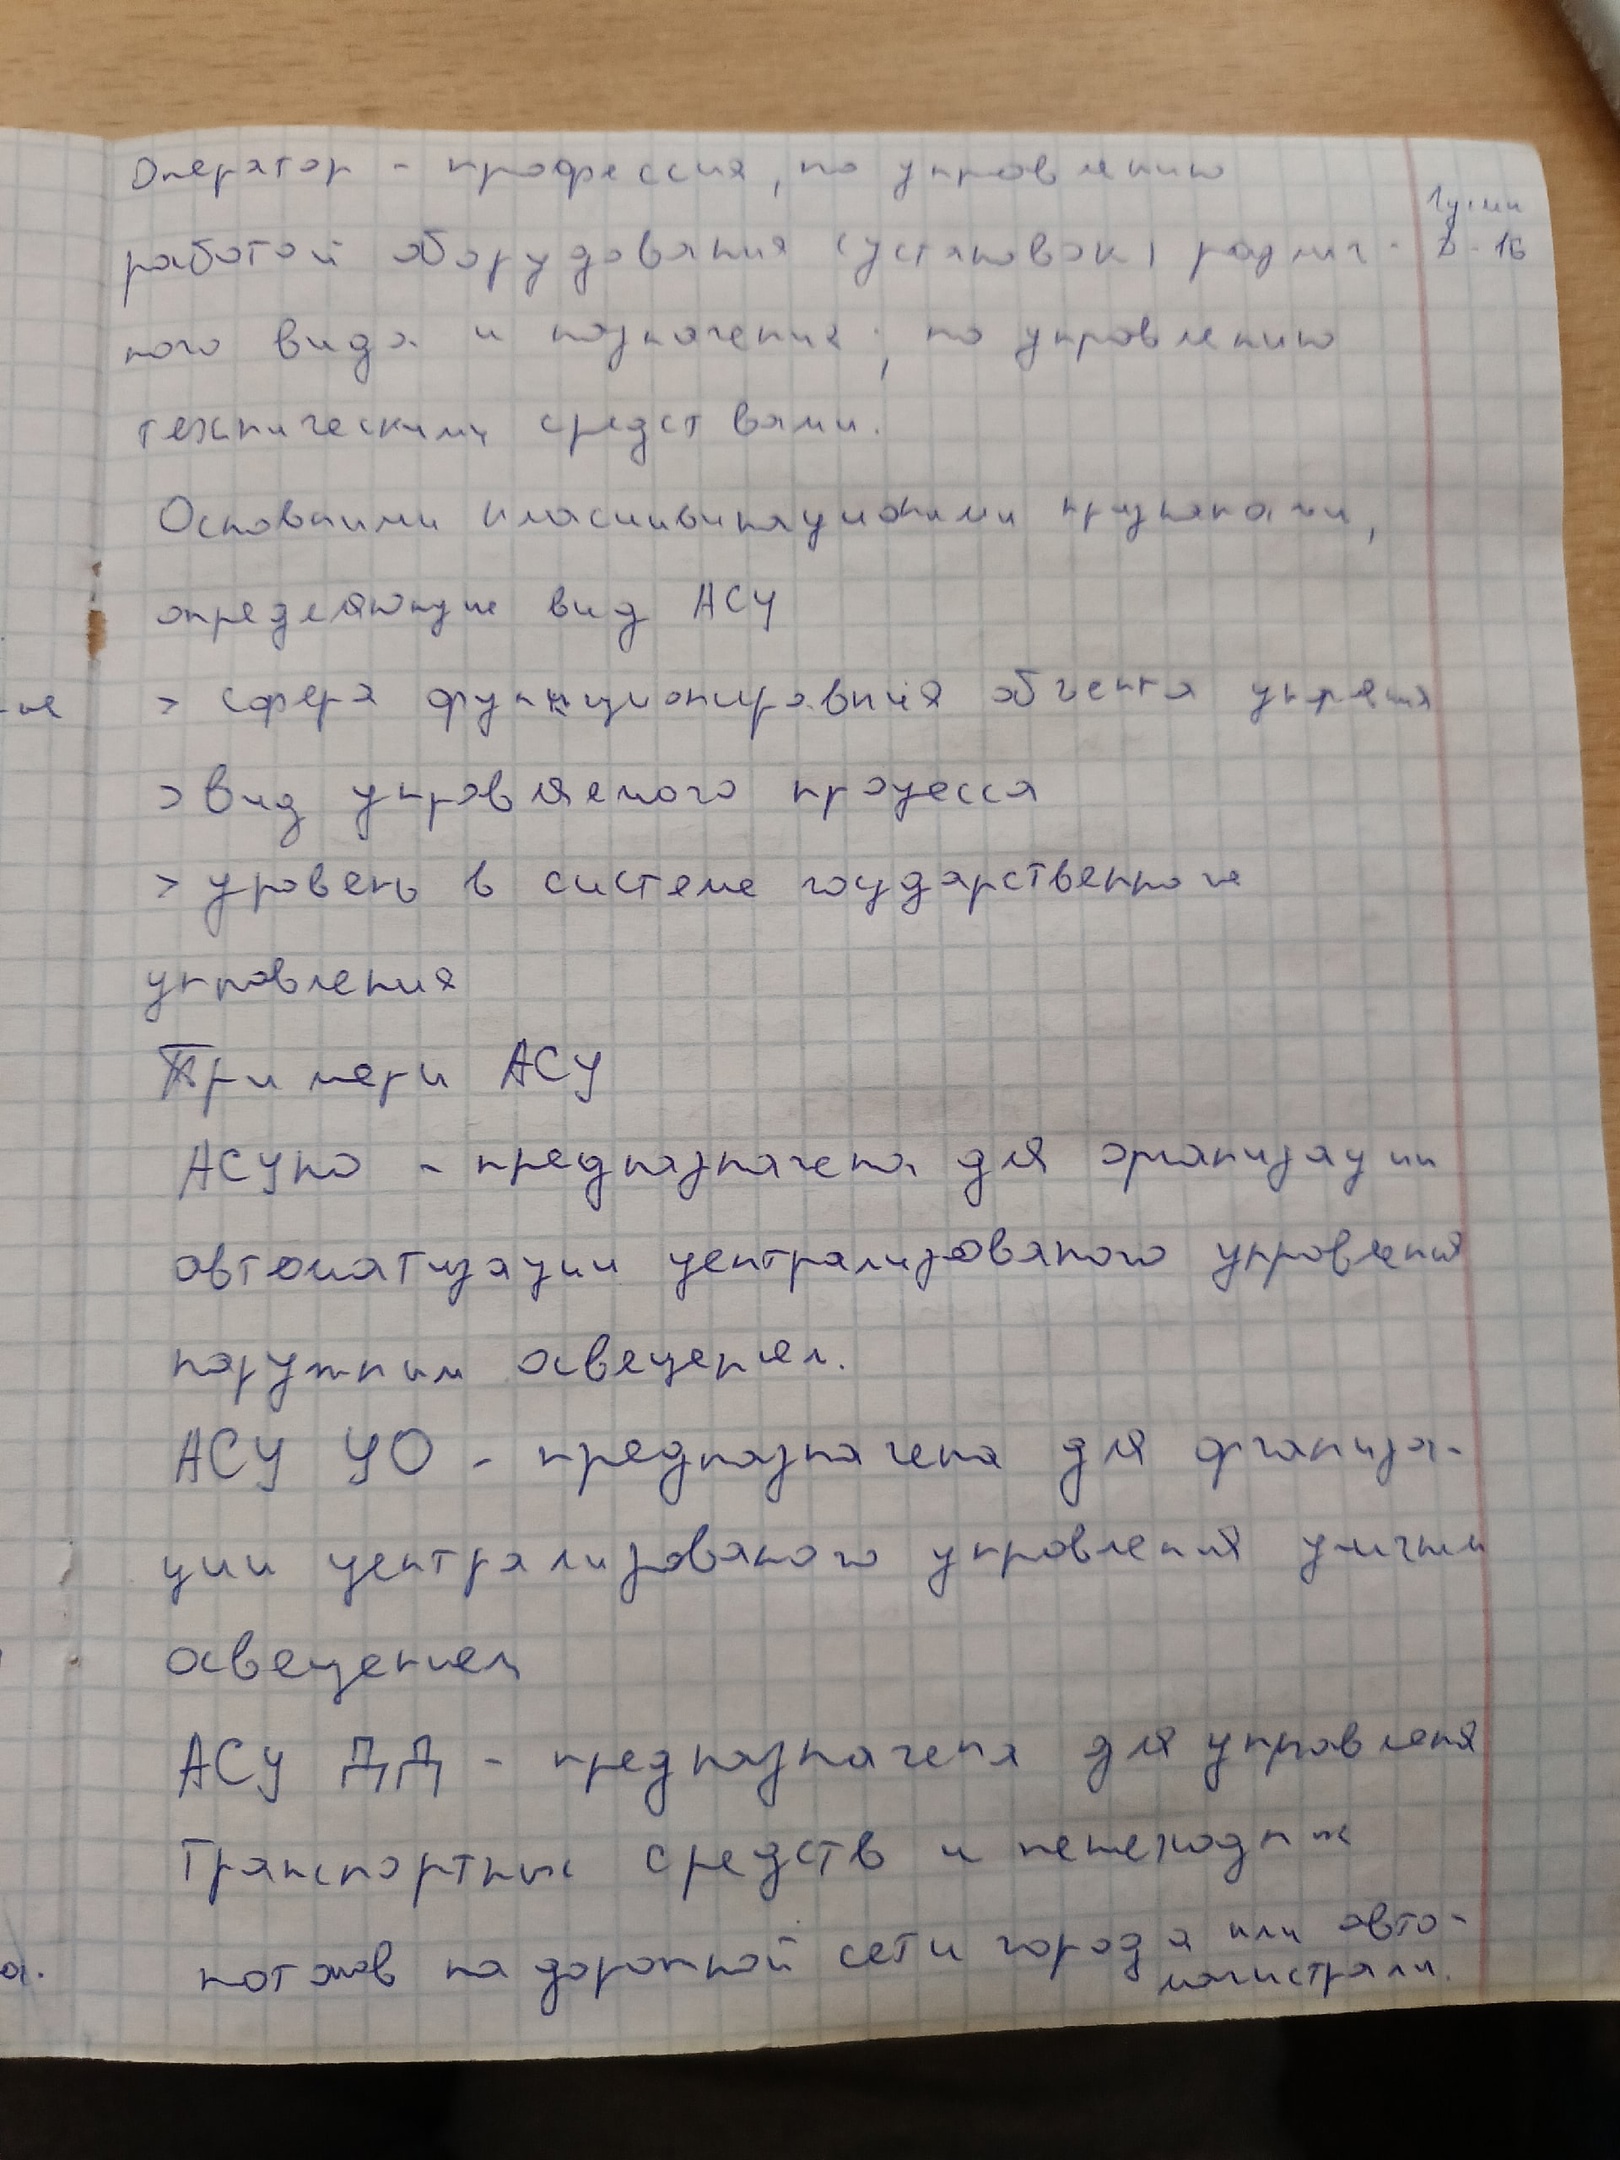 Оператор - профессия, по управлению
работой оборудования (установок) различ-
ного вида и назначения; по управлению
техническими средствами.
Основными классификационими признаками,
определяющие вид АСУ
> сфера функционирования объекта
> Вид управляемого процесса
> уровень в системе
управления
Примеры АСУ
АСУно - предназначена для организации
автоматизации централизованого управления
наружным освещением.
АСУ УО - предназначена для организа-
ции централизованого управления
освещением
АСУ ДД - предназначена для управленя
Транспортных средств и пешеходных
потоков на дорожной сети города или авто-
магистрали.
Д-16